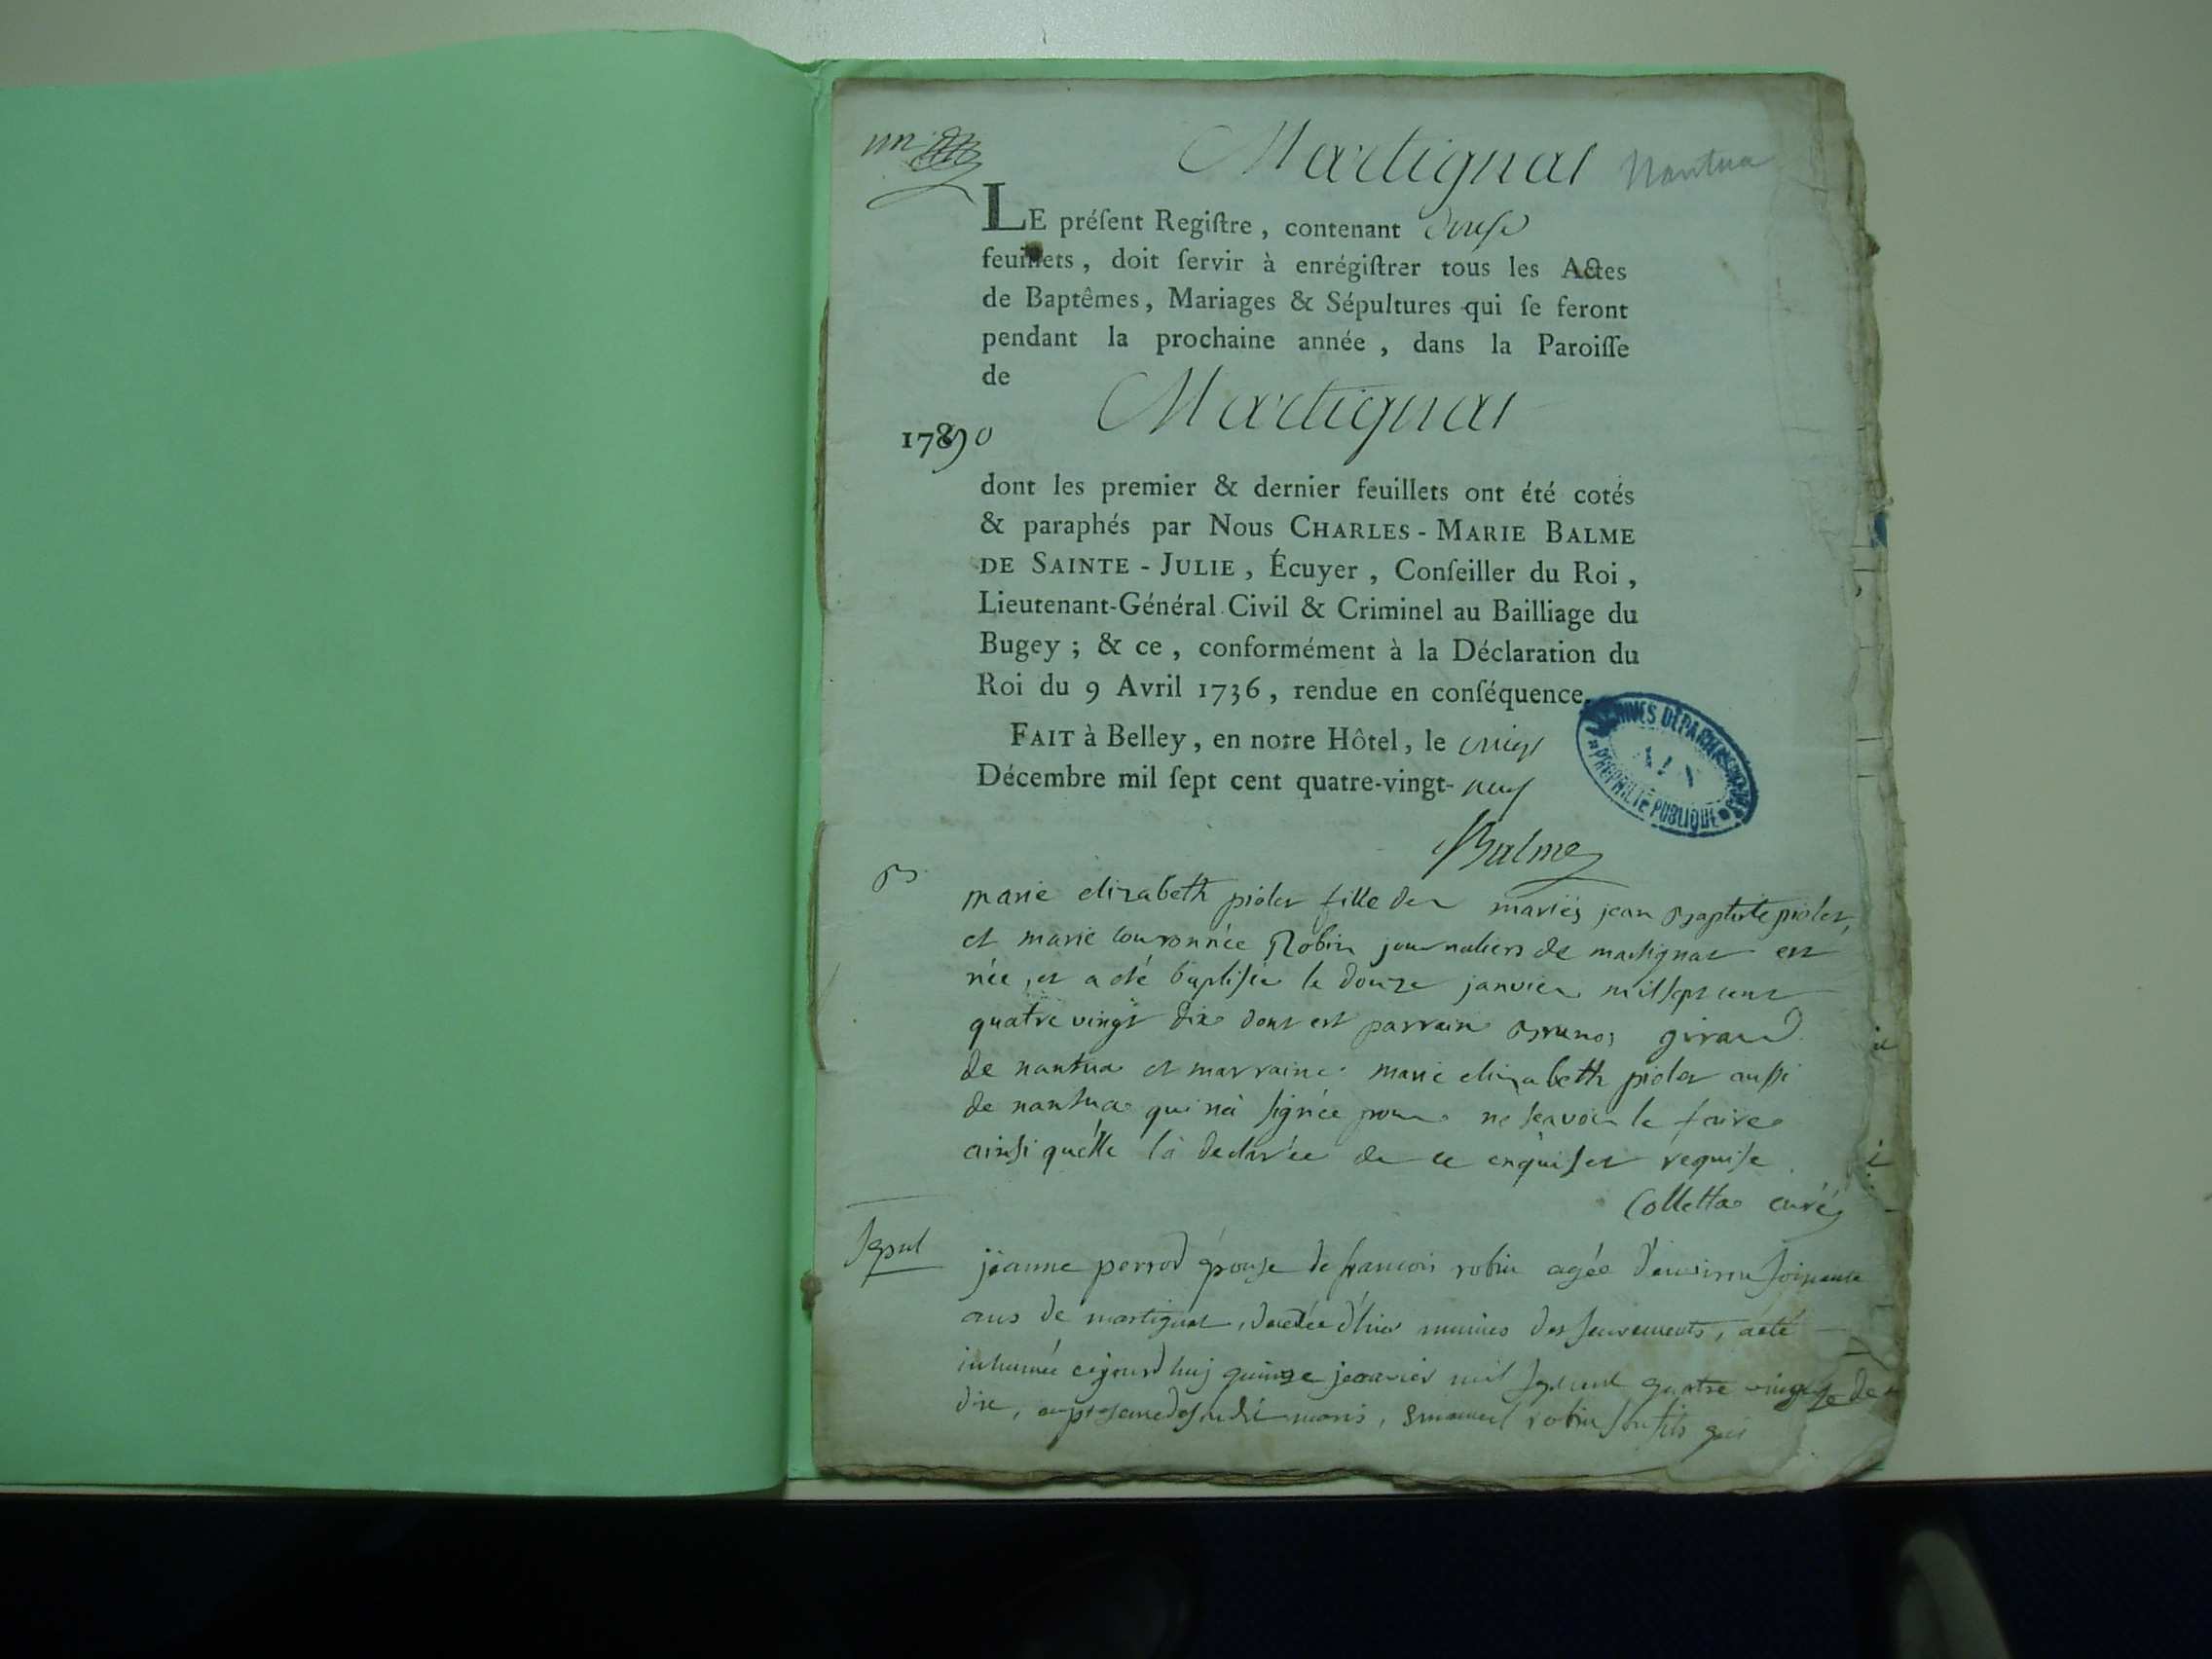 un
Martignat Nantua
LE préſent Regiſtre, contenant douse
feuillets, doit ſervir à enrégiſtrer tous les Actes
de Baptêmes, Mariages & Sépultures qui ſe feront
pendant la prochaine année, dans la Paroiſſe
de
Martignat
1790
dont les premier & dernier feuillets ont été cotés
& paraphés par Nous CHARLES-MARIE BALME
DE SAINTE-JULIE, Écuyer, Conſeiller du Roi,
Lieutenant-Général Civil & Criminel au Bailliage du
Bugey; & ce, conformément à la Déclaration du
Roi du 9 Avril 1736, rendue en conſéquence.
FAIT à Belley, en notre Hôtel, le
Décembre mil ſept cent quatre-vingt-neuf
ARCHIVES DÉPARTEMENTALES
AIN
PROPRIÉTÉ PUBLIQUE
Balme
B
marie elizabeth piolet fille des mariés jean Baptiste piolet,
et marie couronnée Robin journaliers de martignat est
née, et a été baptisée le douze janvier mil sept cent
quatre vingt dix dont est parrain Bruno giraud
de nantua et marraine marie elizabeth piolet aussi
de nantua qui n'a signée pour ne sçavoir le faire
ainsi qu'elle l'a declarée de ce enquise et requise
Colletta curé
Sepul
jeanne perrod épouse de francois robin agée d'environ soixante
ans de martignat, décédée d'hier munies des sacrements, a été
inhumée cejourd'huj quinze janvier mil sept cent quatre vingt
dix, en presence de sondit maris, Emanuel robin son fils qui